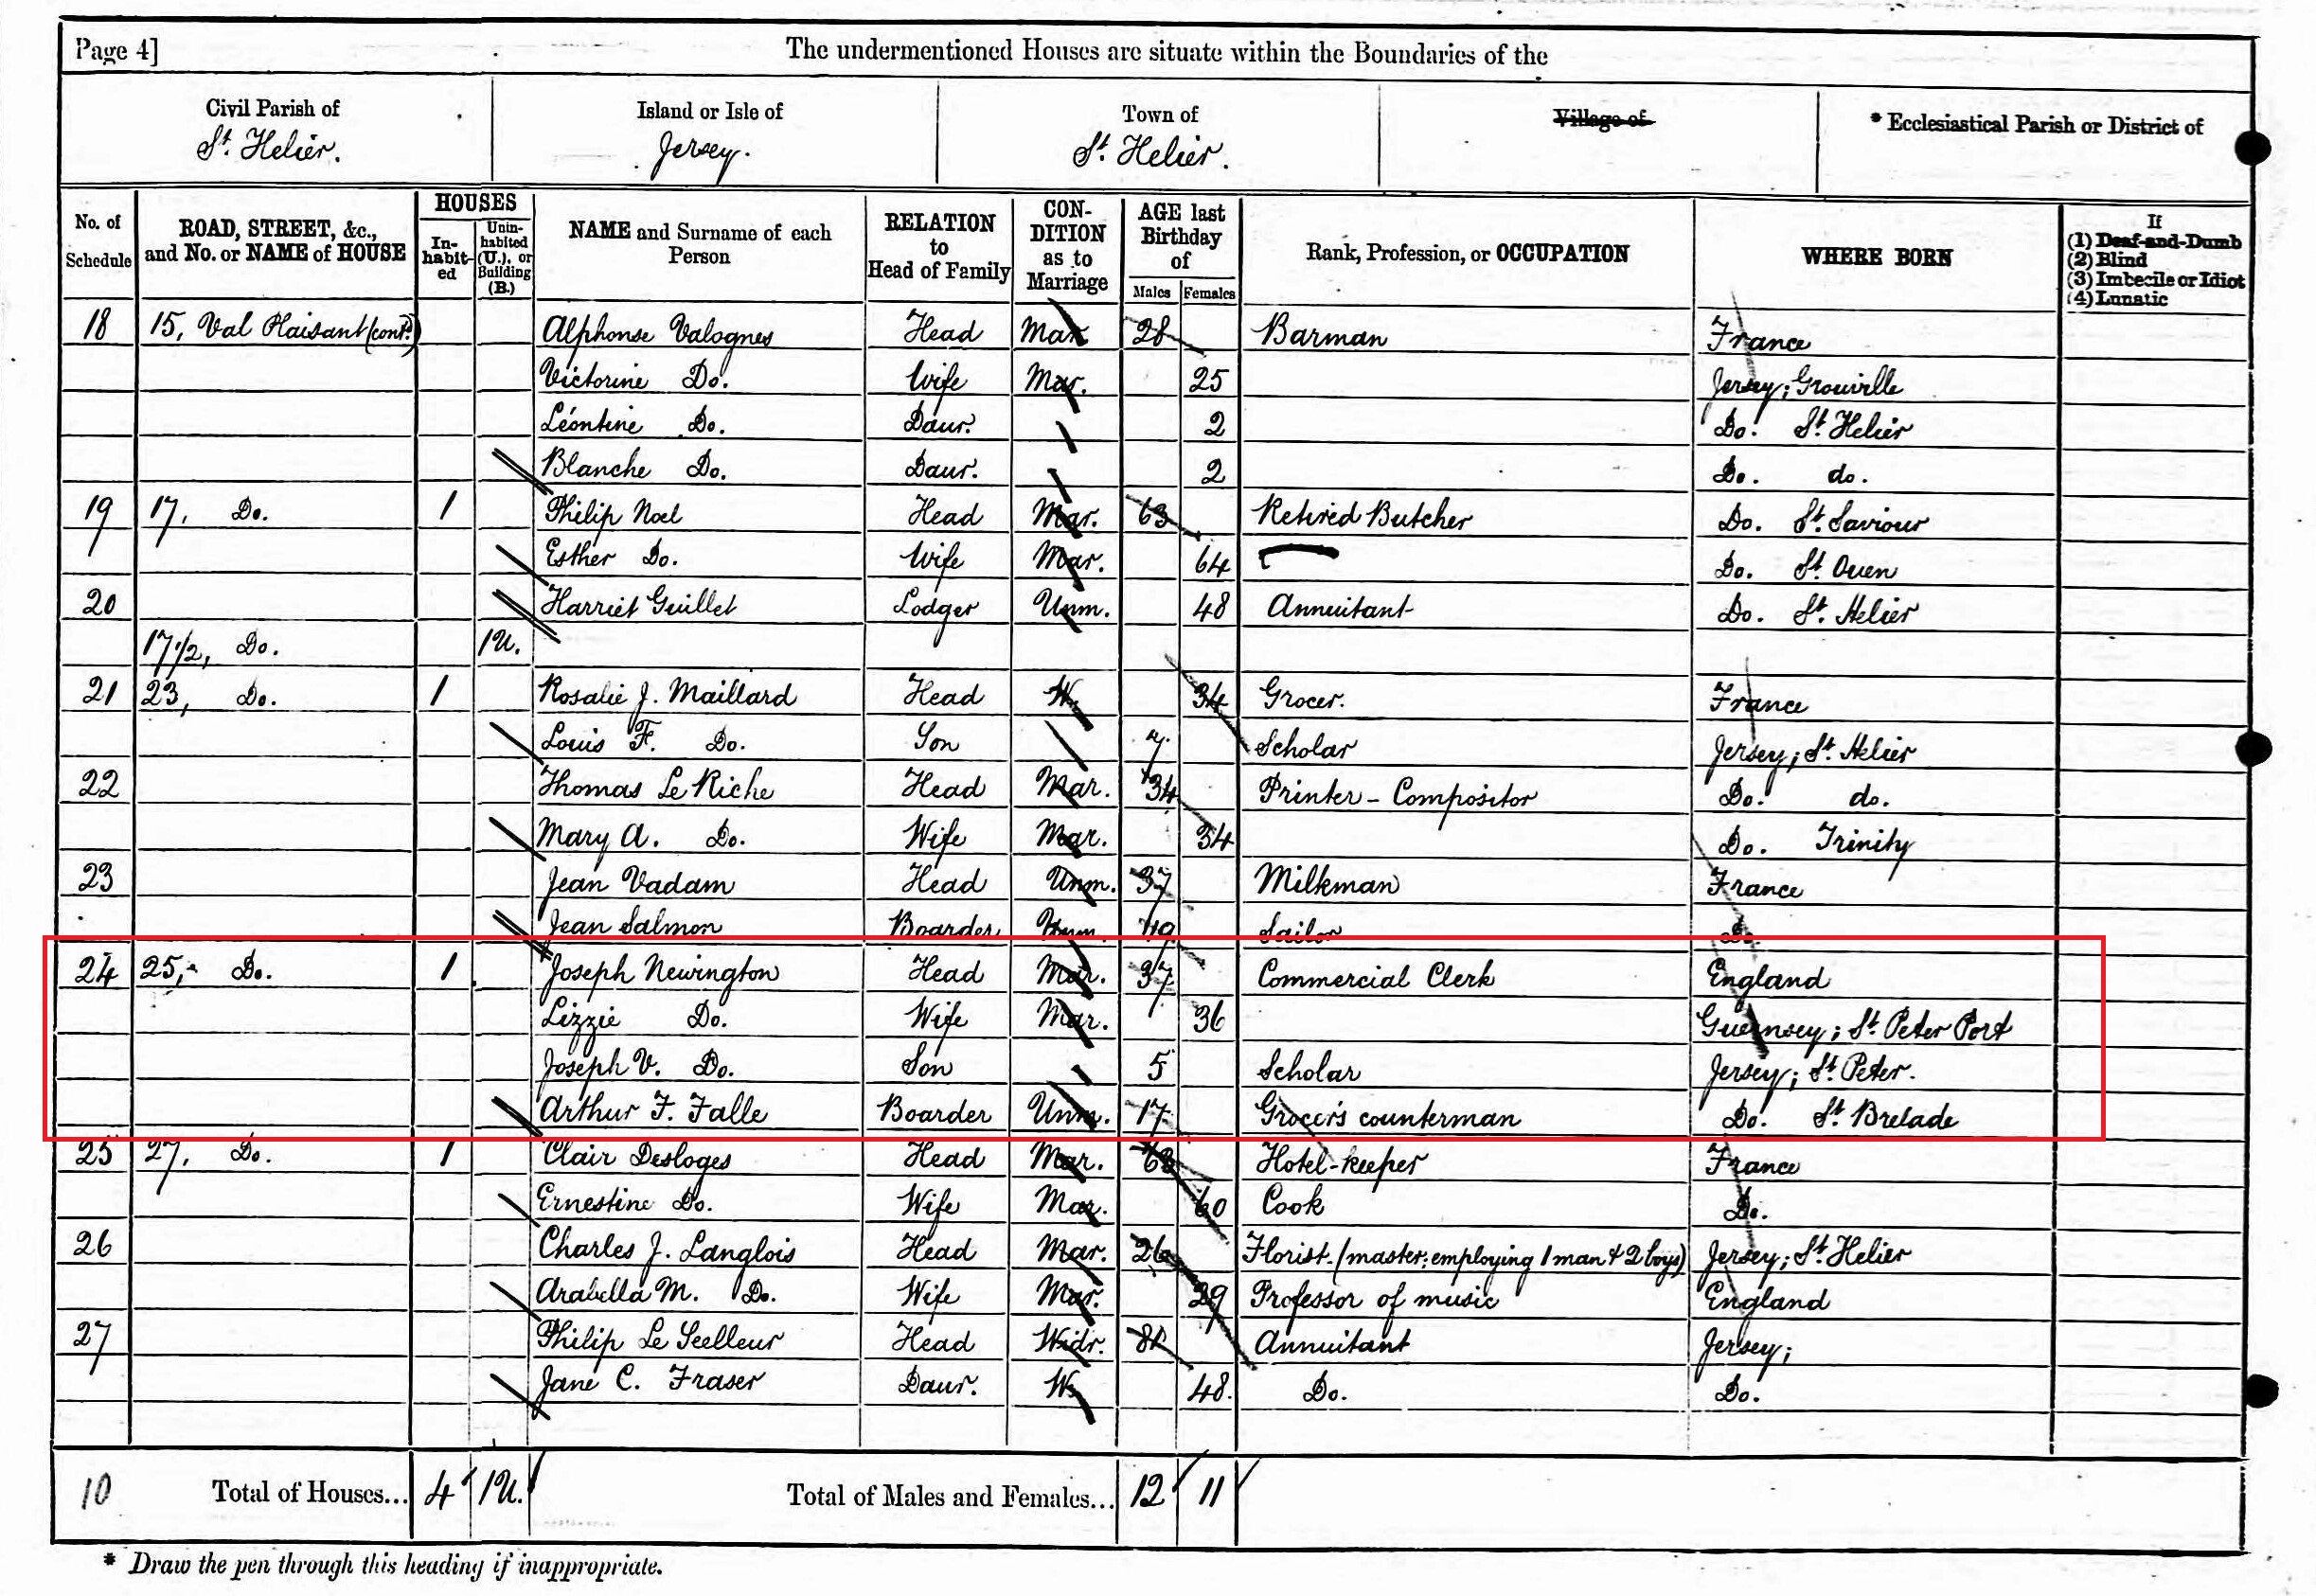 Page 4] The undermentioned Houses are situate within the Boundaries of the
Civil Parish of Island or Isle of Town of Village of * Ecclesiastical Parish or District of
St. Helier. Jersey. St. Helier.
No. of Schedule ROAD, STREET, &c., and No. or NAME of HOUSE HOUSES In-habit-ed Unin-habited (U.), or Building (B.) NAME and Surname of each Person RELATION to Head of Family CON-DITION as to Marriage AGE last Birthday of Males Females Rank, Profession, or OCCUPATION WHERE BORN If (1) Deaf-and-Dumb (2) Blind (3) Imbecile or Idiot (4) Lunatic
18 15, Val Plaisant (cont.) Alphonse Valognes Head Mar. 28 Barman France
Victorine Do. Wife Mar. 25 Jersey; Grouville
Léontine Do. Daur. 2 Do. St. Helier
Blanche Do. Daur. 2 Do. do.
19 17, Do. 1 Philip Noel Head Mar. 63 Retired Butcher Do. St. Saviour
Esther Do. Wife Mar. 64 Do. St. Ouen
20 Harriet Guillet Lodger Unm. 48 Annuitant Do. St. Helier
17 1/2, Do. 1U.
21 23, Do. 1 Rosalie J. Maillard Head W. 34 Grocer. France
Louis F. Do. Son 7 Scholar Jersey; St. Helier
22 Thomas Le Riche Head Mar. 34 Printer - Compositor Do. do.
Mary A. Do. Wife Mar. 34 Do. Trinity
23 Jean Vadam Head Unm. 37 Milkman France
Jean Salmon Boarder Unm. 49 Sailor Do.
24 25, Do. 1 Joseph Newington Head Mar. 37 Commercial Clerk England
Lizzie Do. Wife Mar. 36 Guernsey; St. Peter Port
Joseph V. Do. Son 5 Scholar Jersey; St. Peter.
Arthur F. Falle Boarder Unm. 17 Grocer's counterman Do. St. Brelade
25 27, Do. 1 Clair Desloges Head Mar. 63 Hotel-keeper France
Ernestine Do. Wife Mar. 60 Cook Do.
26 Charles J. Langlois Head Mar. 26 Florist (master; employing 1 man & 2 boys) Jersey; St. Helier
Arabella M. Do. Wife Mar. 29 Professor of music England
27 Philip Le Seelleur Head Widr. 81 Annuitant Jersey;
Jane C. Fraser Daur. W. 48. Do. Do.
10 Total of Houses... 4 1U. Total of Males and Females... 12 11
* Draw the pen through this heading if inappropriate.